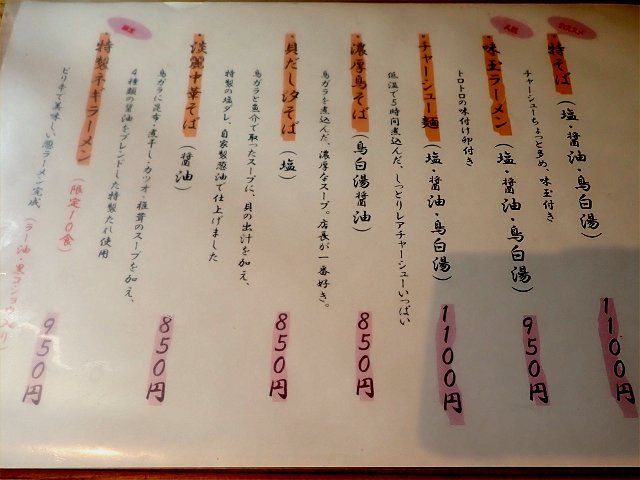 ・特そば(塩・醤油・鳥白湯)
チャーシューちょっと多め、味玉付き
1100円
人気
・味玉ラーメン(塩・醤油・鳥白湯)
トロトロの味付け卵付き
950円
・チャーシュー麺(塩・醤油・鳥白湯)
低温で5時間煮込んだ、しっとりレアチャーシューいっぱい
1100円
・濃厚鳥そば(鳥白湯醤油)
鳥ガラを煮込んだ、濃厚なスープ。店長が一番好き。
850円
・貝だし汐そば(塩)
鳥ガラと魚介で取ったスープに、貝の出汁を加え、
特製の塩ダレ、自家製葱油で仕上げました
850円
・淡麗中華そば(醤油)
鳥ガラに昆布・煮干し・カツオ・椎茸のスープを加え、
4種類の醤油をブレンドした特製だれ使用
850円
・特製ネギラーメン(限定10食)
ピリ辛で美味しい葱ラーメン完成(ラー油・黒コショウ入り)
950円